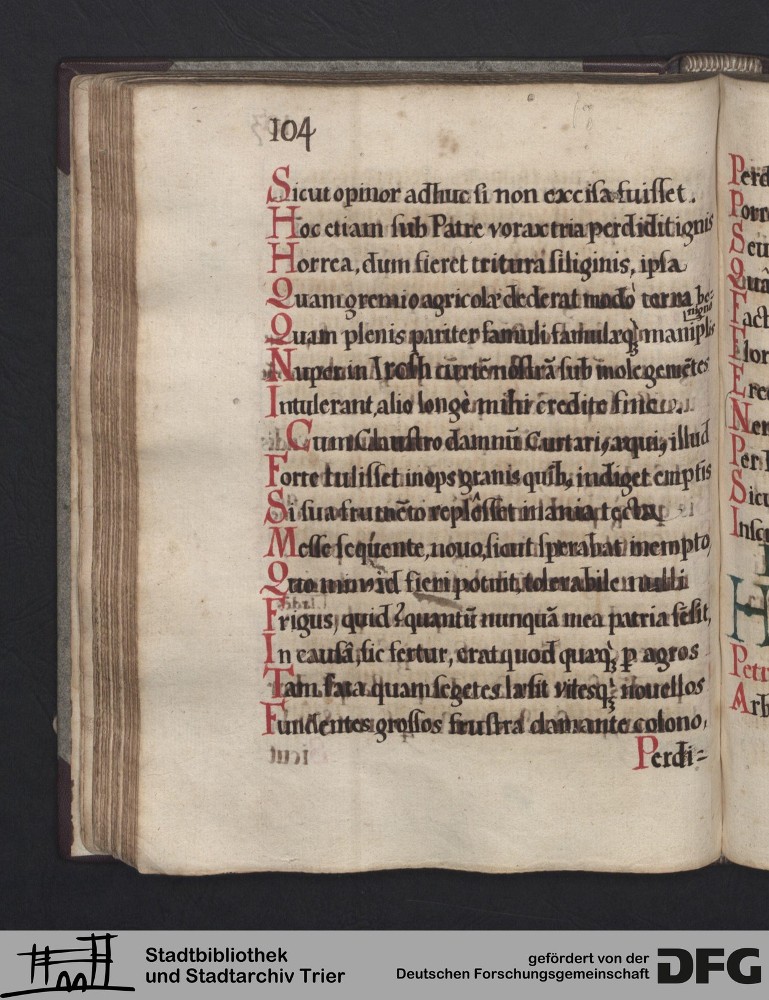 104
Sicut opinor adhuc si non excisa fuisset.
Hoc etiam sub Patre vorax tria perdidit ignis
Horrea, dum fieret tritura siliginis, ipsa
Quam gremio agricolæ dederat modò terra be=
nigno
Quam plenis pariter famuli famulæq; maniplis
Nuper in curtẽ nostrã sub mole gemẽtes
Intulerant, alio longè mihi credite fine.
Cum Claustro damnũ Curtaris, aqui, illud
Forte tulisset inops granis quib, indiget emptis
Si sua frumẽto replôsset inania tecta,
Messe sequente, nouo, sicut sperabat inempto,
Quo minus id fieri potuit, tolerabile nulli
Frigus, quid? quantũ nunquã mea patria sẽsit,
In causâ, sic fertur, erat quod quaq; p agros
Tam fata quam segetes læsit vitesq; nouellos
Fundentes grossos frustrà clamante colono,
Perdi=
Perd
Porr
Seu
Quã
Fact
Flor
Ere
Ner
Per
Sicu
Insc
H
Petr
Arb
Stadtbibliothek
und Stadtarchiv Trier
gefördert von der
Deutschen Forschungsgemeinschaft
DFG